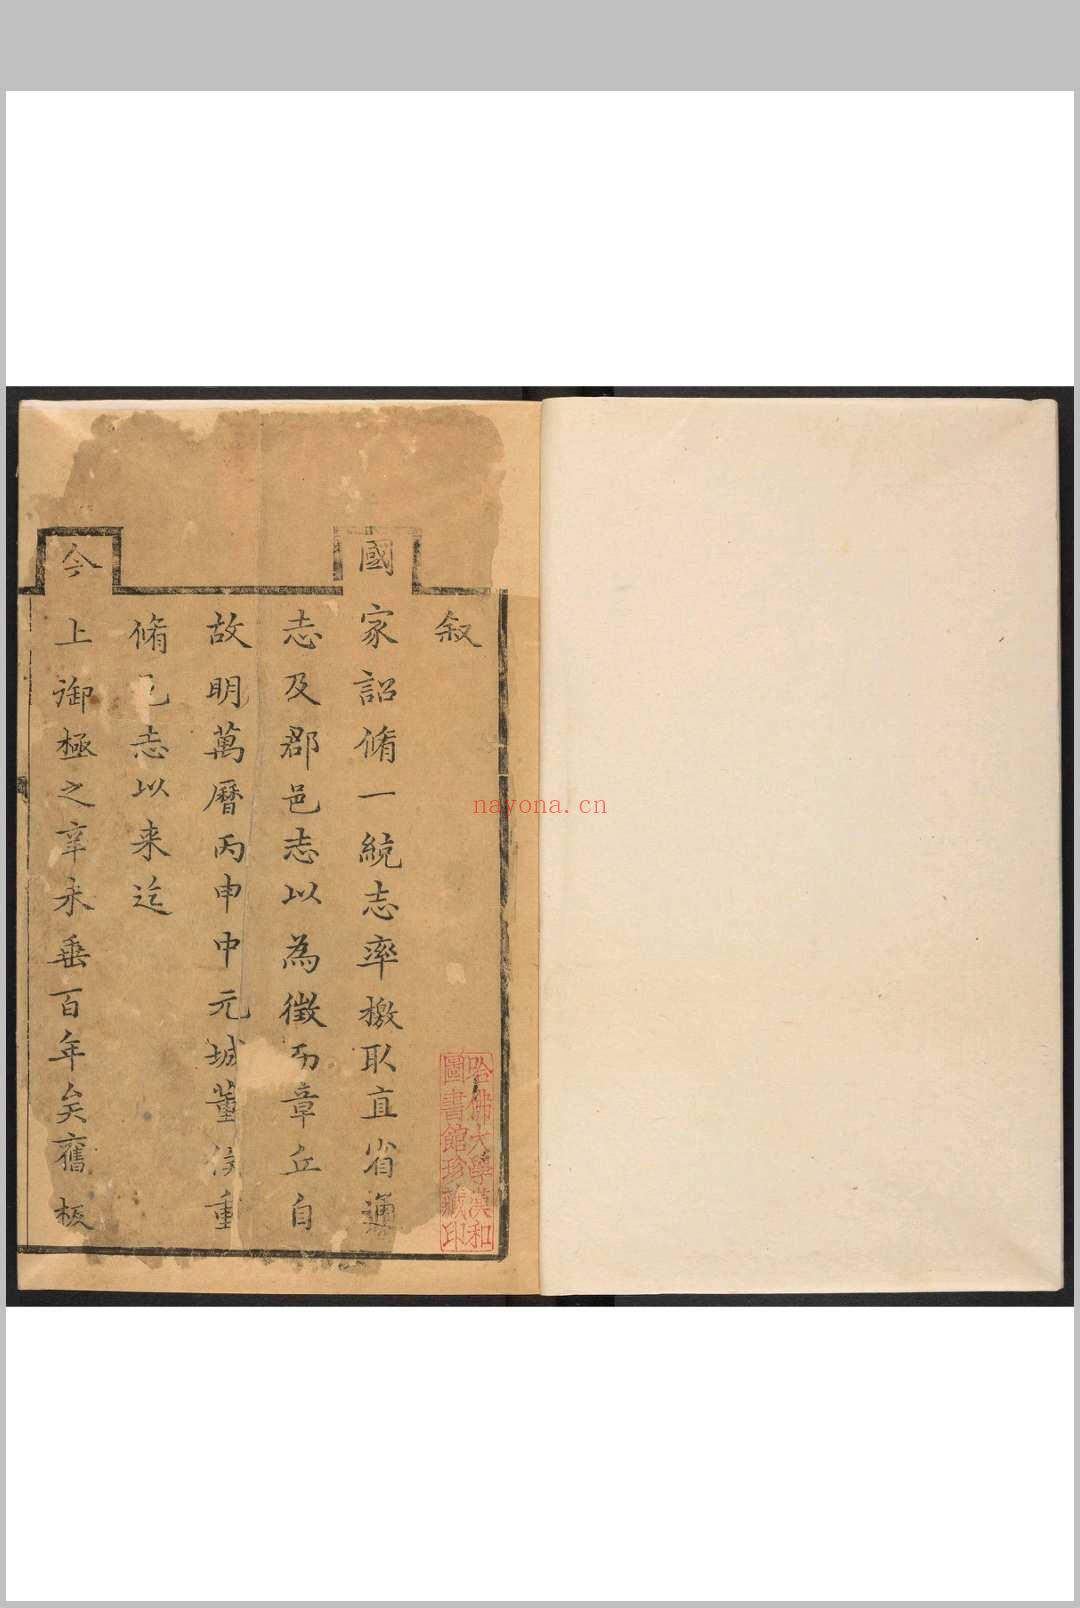 叙
國家詔脩一統志率檄取直省通
志及郡邑志以為徵而章丘自
故明萬曆丙申中元城董侯重
脩邑志以来迄
今上御極之辛未垂百年矣舊板
哈佛大學漢和
圖書館珍藏印
nayona.cn